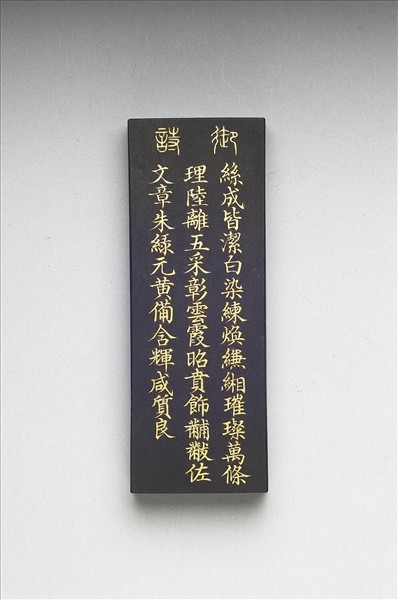 御詩
絲成皆潔白染練煥縑緗璀璨萬條
理陸離五采彰雲霞昭賁飾黼黻佐
文章朱綠元黄備含輝咸質良